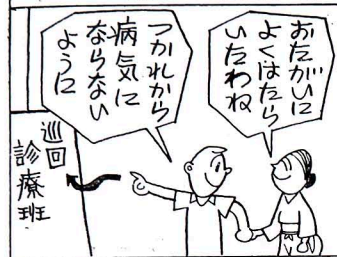 おたがいに
よくはたら
いたわね
つかれから
病気に
ならない
ように
巡回
診療班